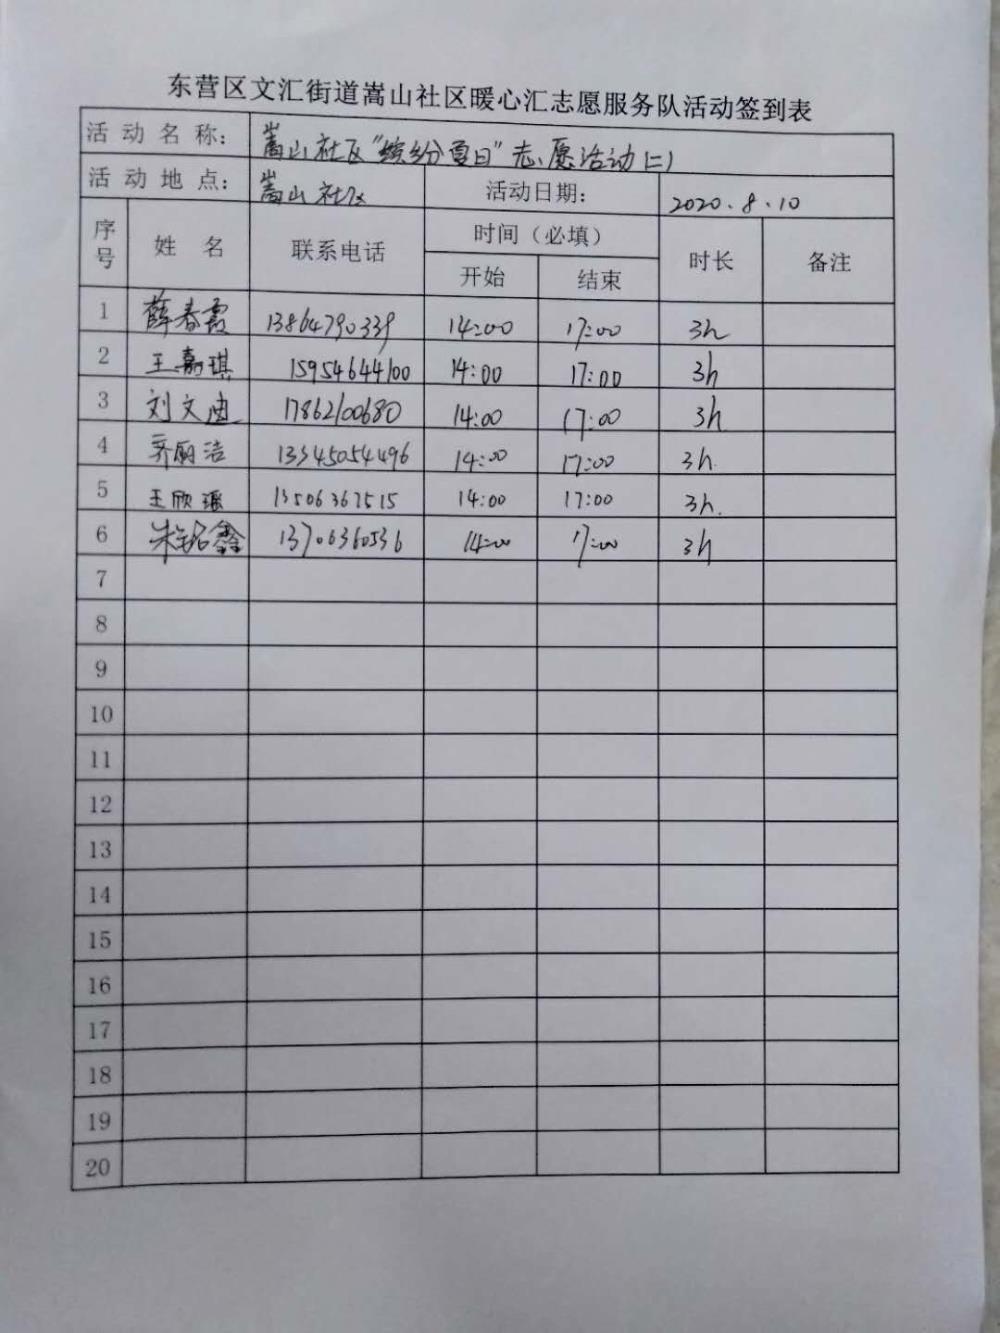 东营区文汇街道嵩山社区暖心汇志愿服务队活动签到表
活动名称： 嵩山社区“缤纷夏日”志愿活动（二）
活动地点： 嵩山社区 活动日期： 2020.8.10
序号 姓名 联系电话 时间（必填） 时长 备注
开始 结束
1 薛春霞 13864790339 14:00 17:00 3h
2 王嘉琪 15954644100 14:00 17:00 3h
3 刘文迪 17862100680 14:00 17:00 3h
4 齐丽洁 13345054496 14:00 17:00 3h.
5 王欣瑶 13506367515 14:00 17:00 3h.
6 朱铭鑫 13706360536 14:00 17:00 3h
7
8
9
10
11
12
13
14
15
16
17
18
19
20